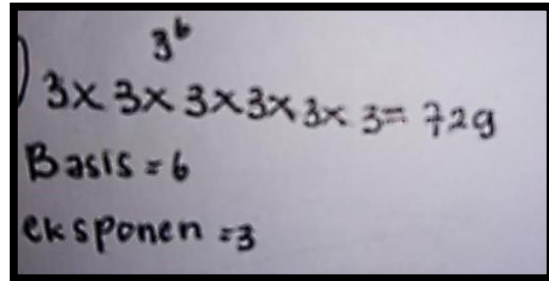 3⁶
) 3x 3x 3x3x3x 3= 729
Basis = 6
eksponen =3